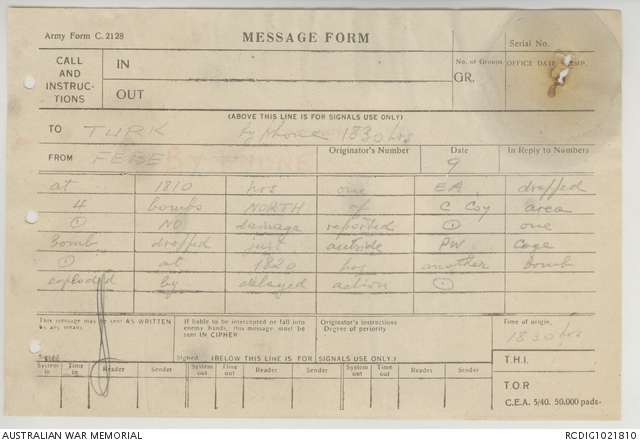 Army Form C. 2128
MESSAGE FORM
Serial No.
CALL AND INSTRUC- TIONS
IN
OUT
No. of Groups
GR.
OFFICE DATE STAMP.
(ABOVE THIS LINE IS FOR SIGNALS USE ONLY)
TO TURK by phone 1830 hrs
FROM FEBE
Originator's Number
Date
9
In Reply to Numbers
at 1810 hrs one EA dropped
4 bombs NORTH of C Coy area
⊙ NO damage reported ⊙ one
Bomb dropped just outside PW Cage
⊙ at 1820 hrs another bomb
exploded by delayed action ⊙
This message may be sent AS WRITTEN by any means
If liable to be intercepted or fall into enemy hands, this message must be sent IN CIPHER
Originator's Instructions
Degree of priority
Time of origin.
1830 hrs
Signed
Signed (BELOW THIS LINE IS FOR SIGNALS USE ONLY)
T.H.I.
System in
Time in
Reader
Sender
System out
Time out
Reader
Sender
System out
Time out
Reader
Sender
T.O.R
C.E.A. 5/40. 50,000 pads.
AUSTRALIAN WAR MEMORIAL
RCDIG1021810